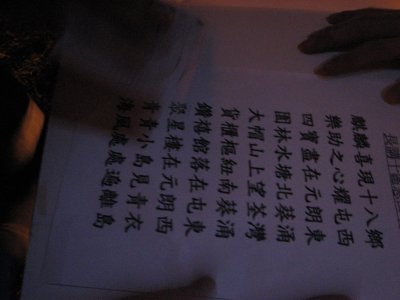 麒麟喜現十八鄉
樂助之心耀屯西
四寶盡在元朗東
園林水塘北葵涌
大帽山上望荃灣
貨櫃樞紐南葵涌
館落在屯東
聚星樓在元朗西
青青小島見青衣
海風處處遍離島